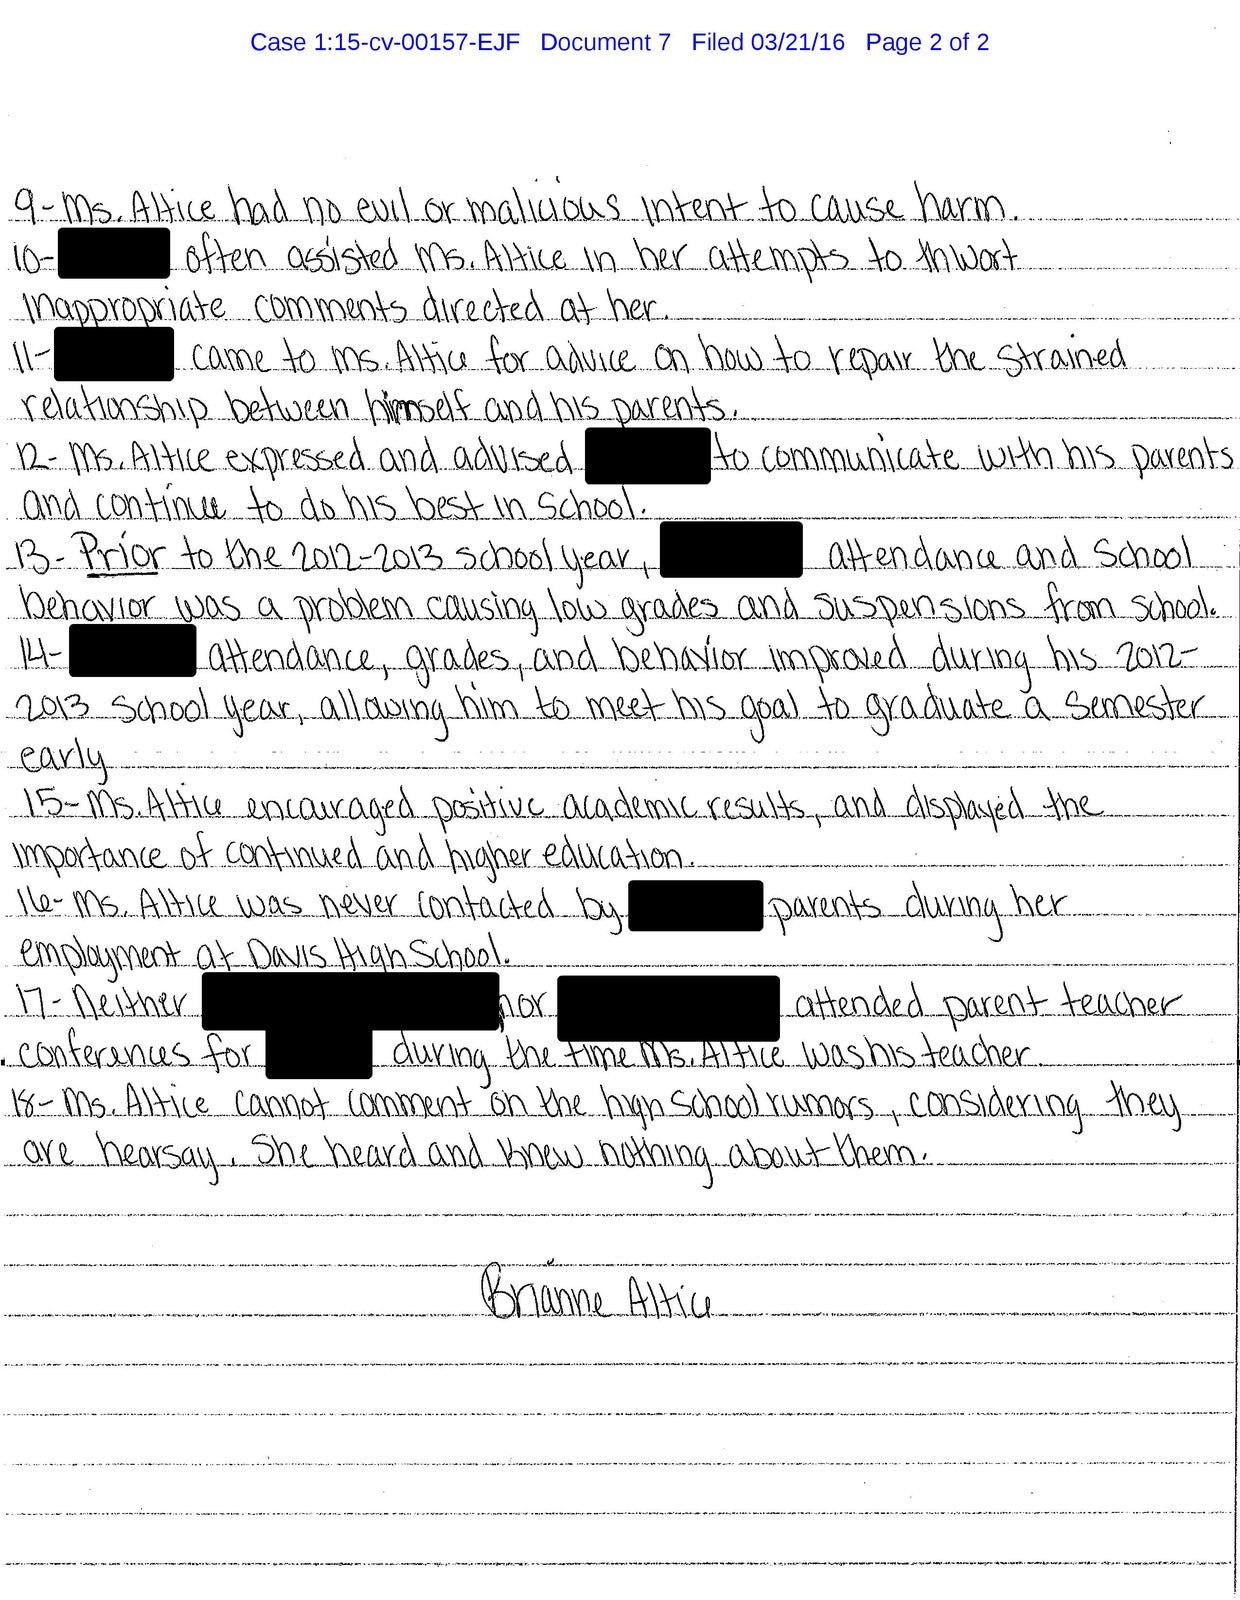 Case 1:15-cv-00157-EJF   Document 7   Filed 03/21/16   Page 2 of 2
9- Ms. Altice had no evil or malicious intent to cause harm.
10- often assisted Ms. Altice in her attempts to thwort
inappropriate comments directed at her.
11- came to Ms. Altice for advice on how to repair the strained
relationship between himself and his parents.
12- Ms. Altice expressed and advised to communicate with his parents
and continue to do his best in school.
13- Prior to the 2012-2013 school year, attendance and school
behavior was a problem causing low grades and suspensions from school.
14- attendance, grades, and behavior improved during his 2012-
2013 school year, allowing him to meet his goal to graduate a semester
early
15- Ms. Altice encouraged positive academic results, and displayed the
importance of continued and higher education.
16- Ms. Altice was never contacted by parents during her
employment at Davis High School.
17- Neither nor attended parent teacher
conferences for during the time Ms. Altice was his teacher.
18- Ms. Altice cannot comment on the high school rumors, considering they
are hearsay. She heard and knew nothing about them.
Brianne Altice